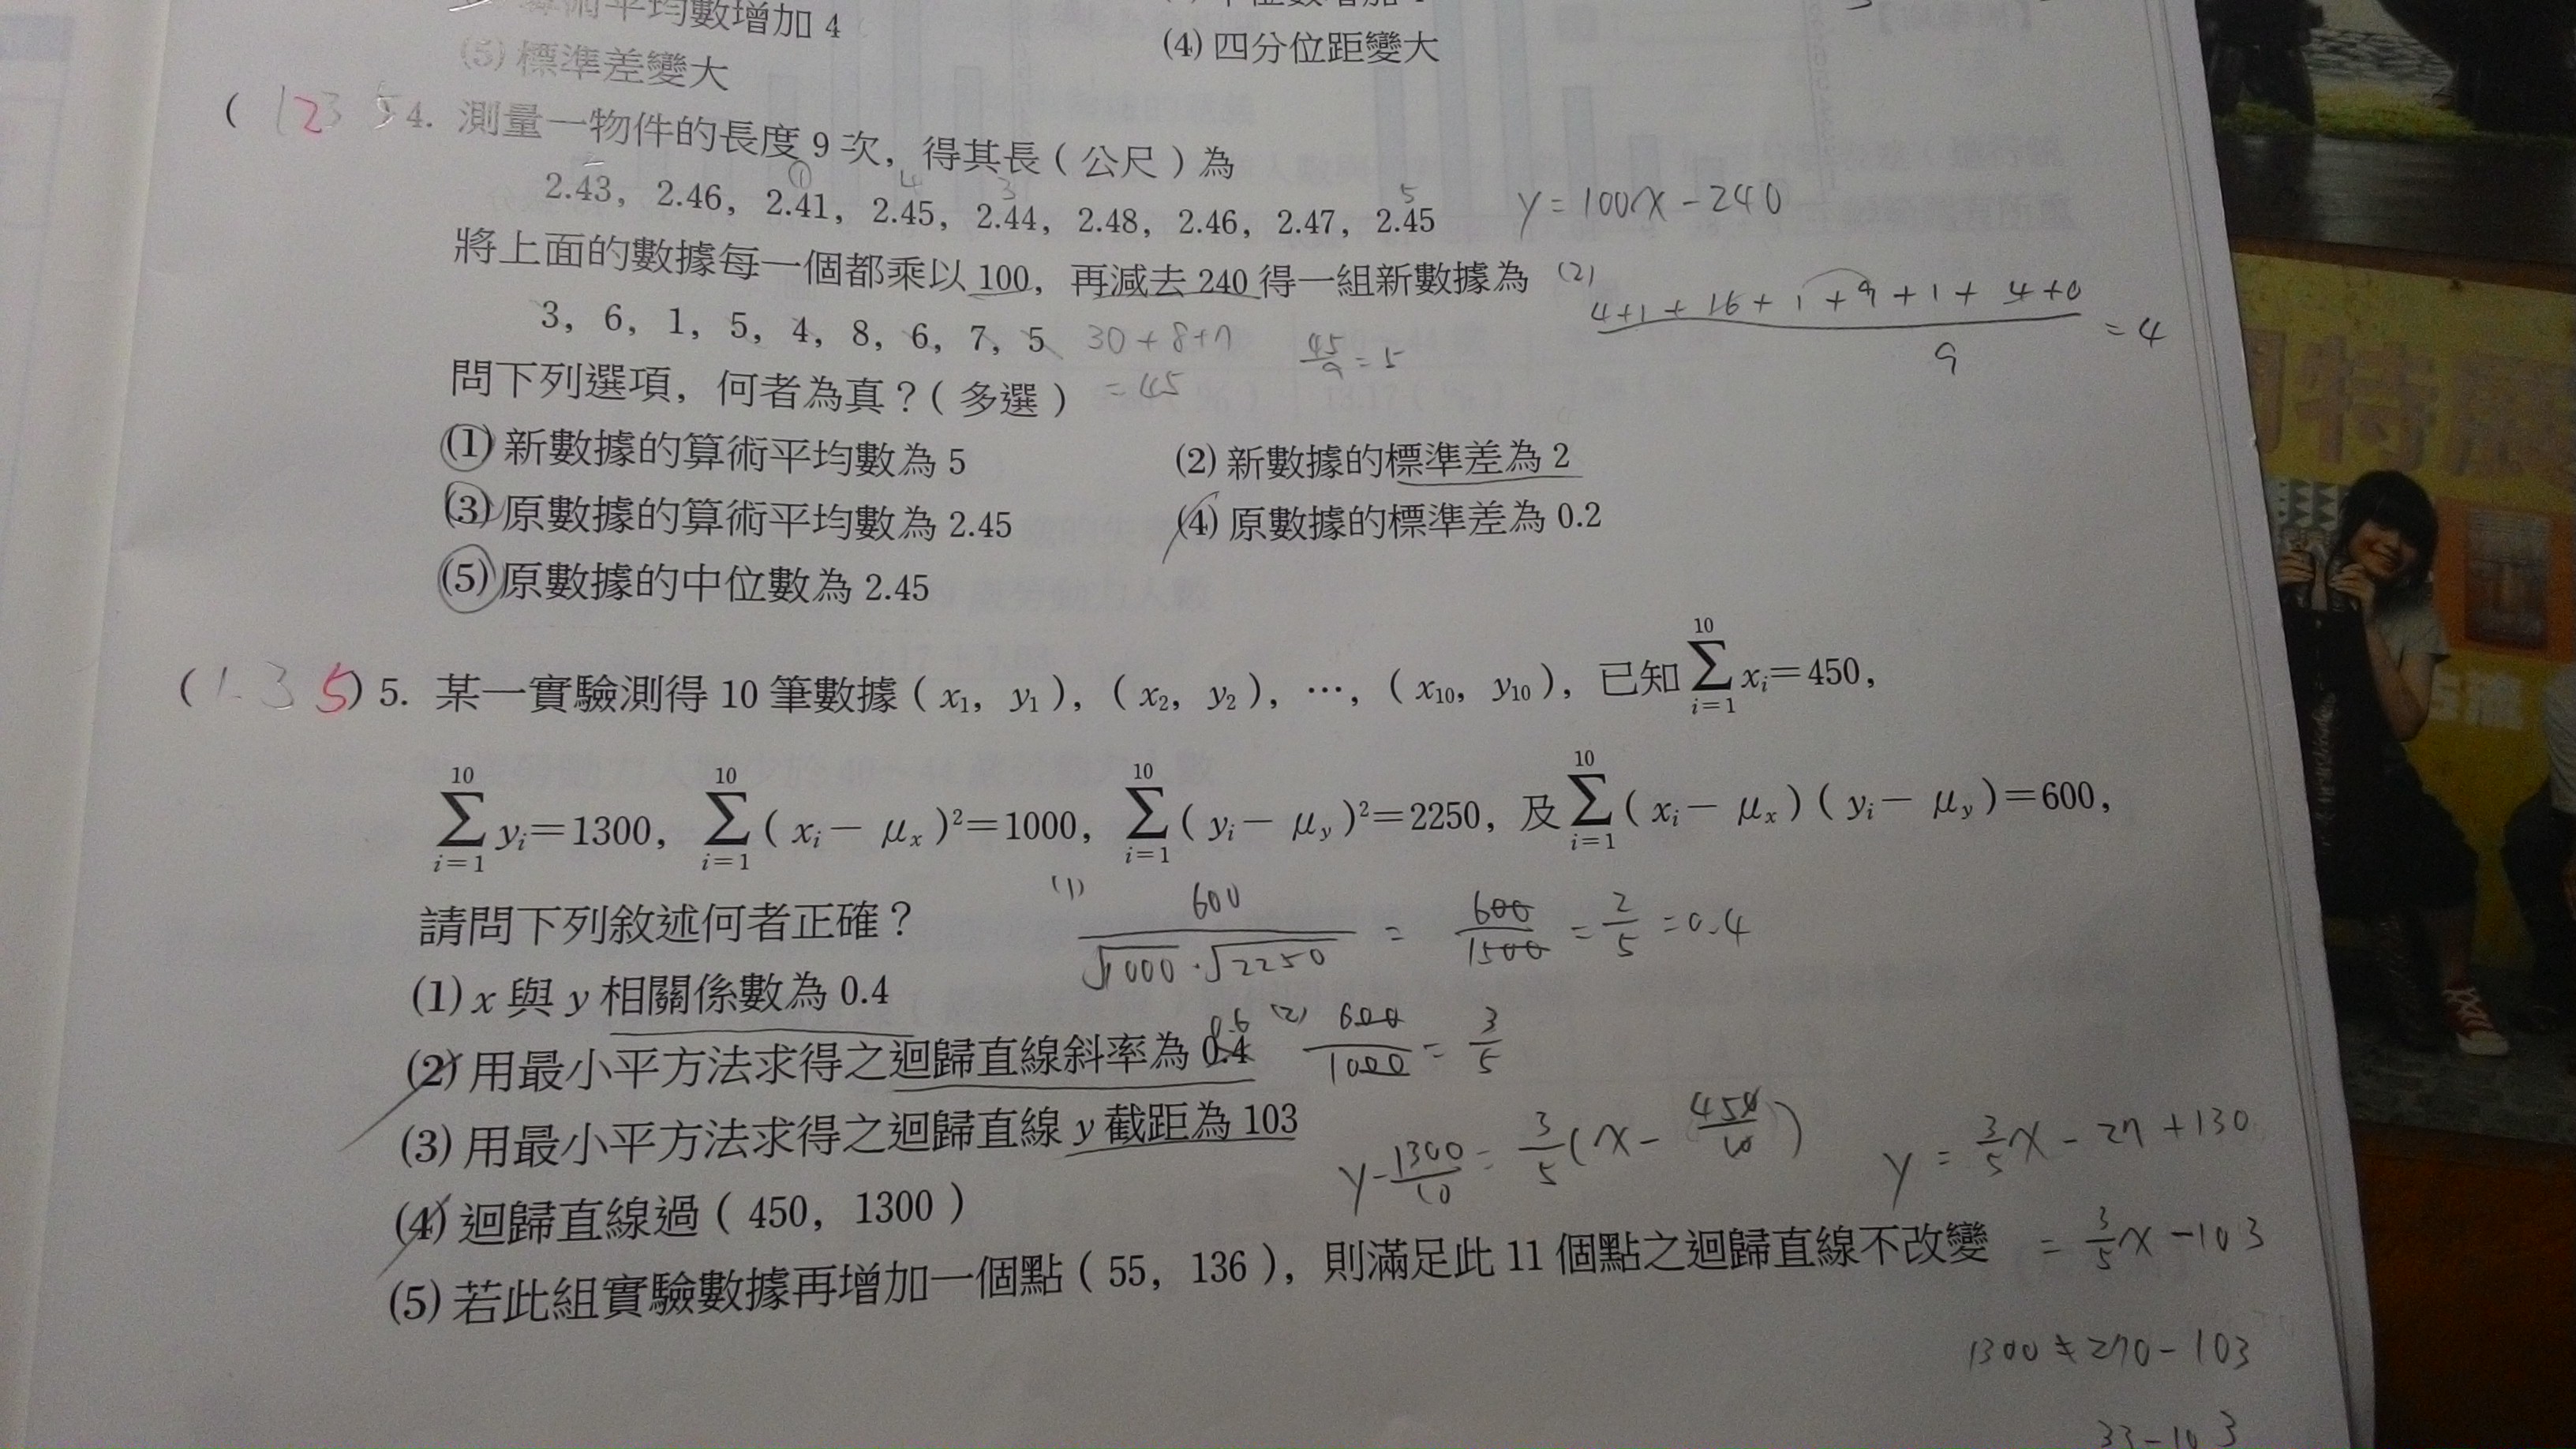 算術平均數增加 4
(5) 標準差變大
(4) 四分位距變大
( 123 5 4. 測量一物件的長度 9 次，得其長（公尺）為
2.43，2.46，2.41，2.45，2.44，2.48，2.46，2.47，2.45
① 4 3 5
y = 100x - 240
將上面的數據每一個都乘以 100，再減去 240 得一組新數據為
3，6，1，5，4，8，6，7，5
30 + 8 + 7
= 45
45/9 = 5
(2) 4+1+16+1+9+1+4+0 / 9 = 4
問下列選項，何者為真？（多選）
(1) 新數據的算術平均數為 5
(2) 新數據的標準差為 2
(3) 原數據的算術平均數為 2.45
(4) 原數據的標準差為 0.2
(5) 原數據的中位數為 2.45
( 1 3 5 ) 5. 某一實驗測得 10 筆數據（x₁，y₁），（x₂，y₂），⋯，（x₁₀，y₁₀），已知 ∑_{i=1}^{10} xᵢ=450，
∑_{i=1}^{10} yᵢ=1300，∑_{i=1}^{10}（xᵢ－μₓ）²=1000，∑_{i=1}^{10}（yᵢ－μ_y）²=2250，及 ∑_{i=1}^{10}（xᵢ－μₓ）（yᵢ－μ_y）=600，
請問下列敘述何者正確？
(1) 600 / √1000 · √2250 = 600/1500 = 2/5 = 0.4
(1) x 與 y 相關係數為 0.4
(2) 用最小平方法求得之迴歸直線斜率為 0.4
0.6 (2) 600/1000 = 3/5
(3) 用最小平方法求得之迴歸直線 y 截距為 103
y - 1300/10 = 3/5 (x - 450/10)
y = 3/5 x - 27 + 130
= 3/5 x - 103
(4) 迴歸直線過（450，1300）
(5) 若此組實驗數據再增加一個點（55，136），則滿足此 11 個點之迴歸直線不改變
1300 ≠ 270 - 103
33 - 103